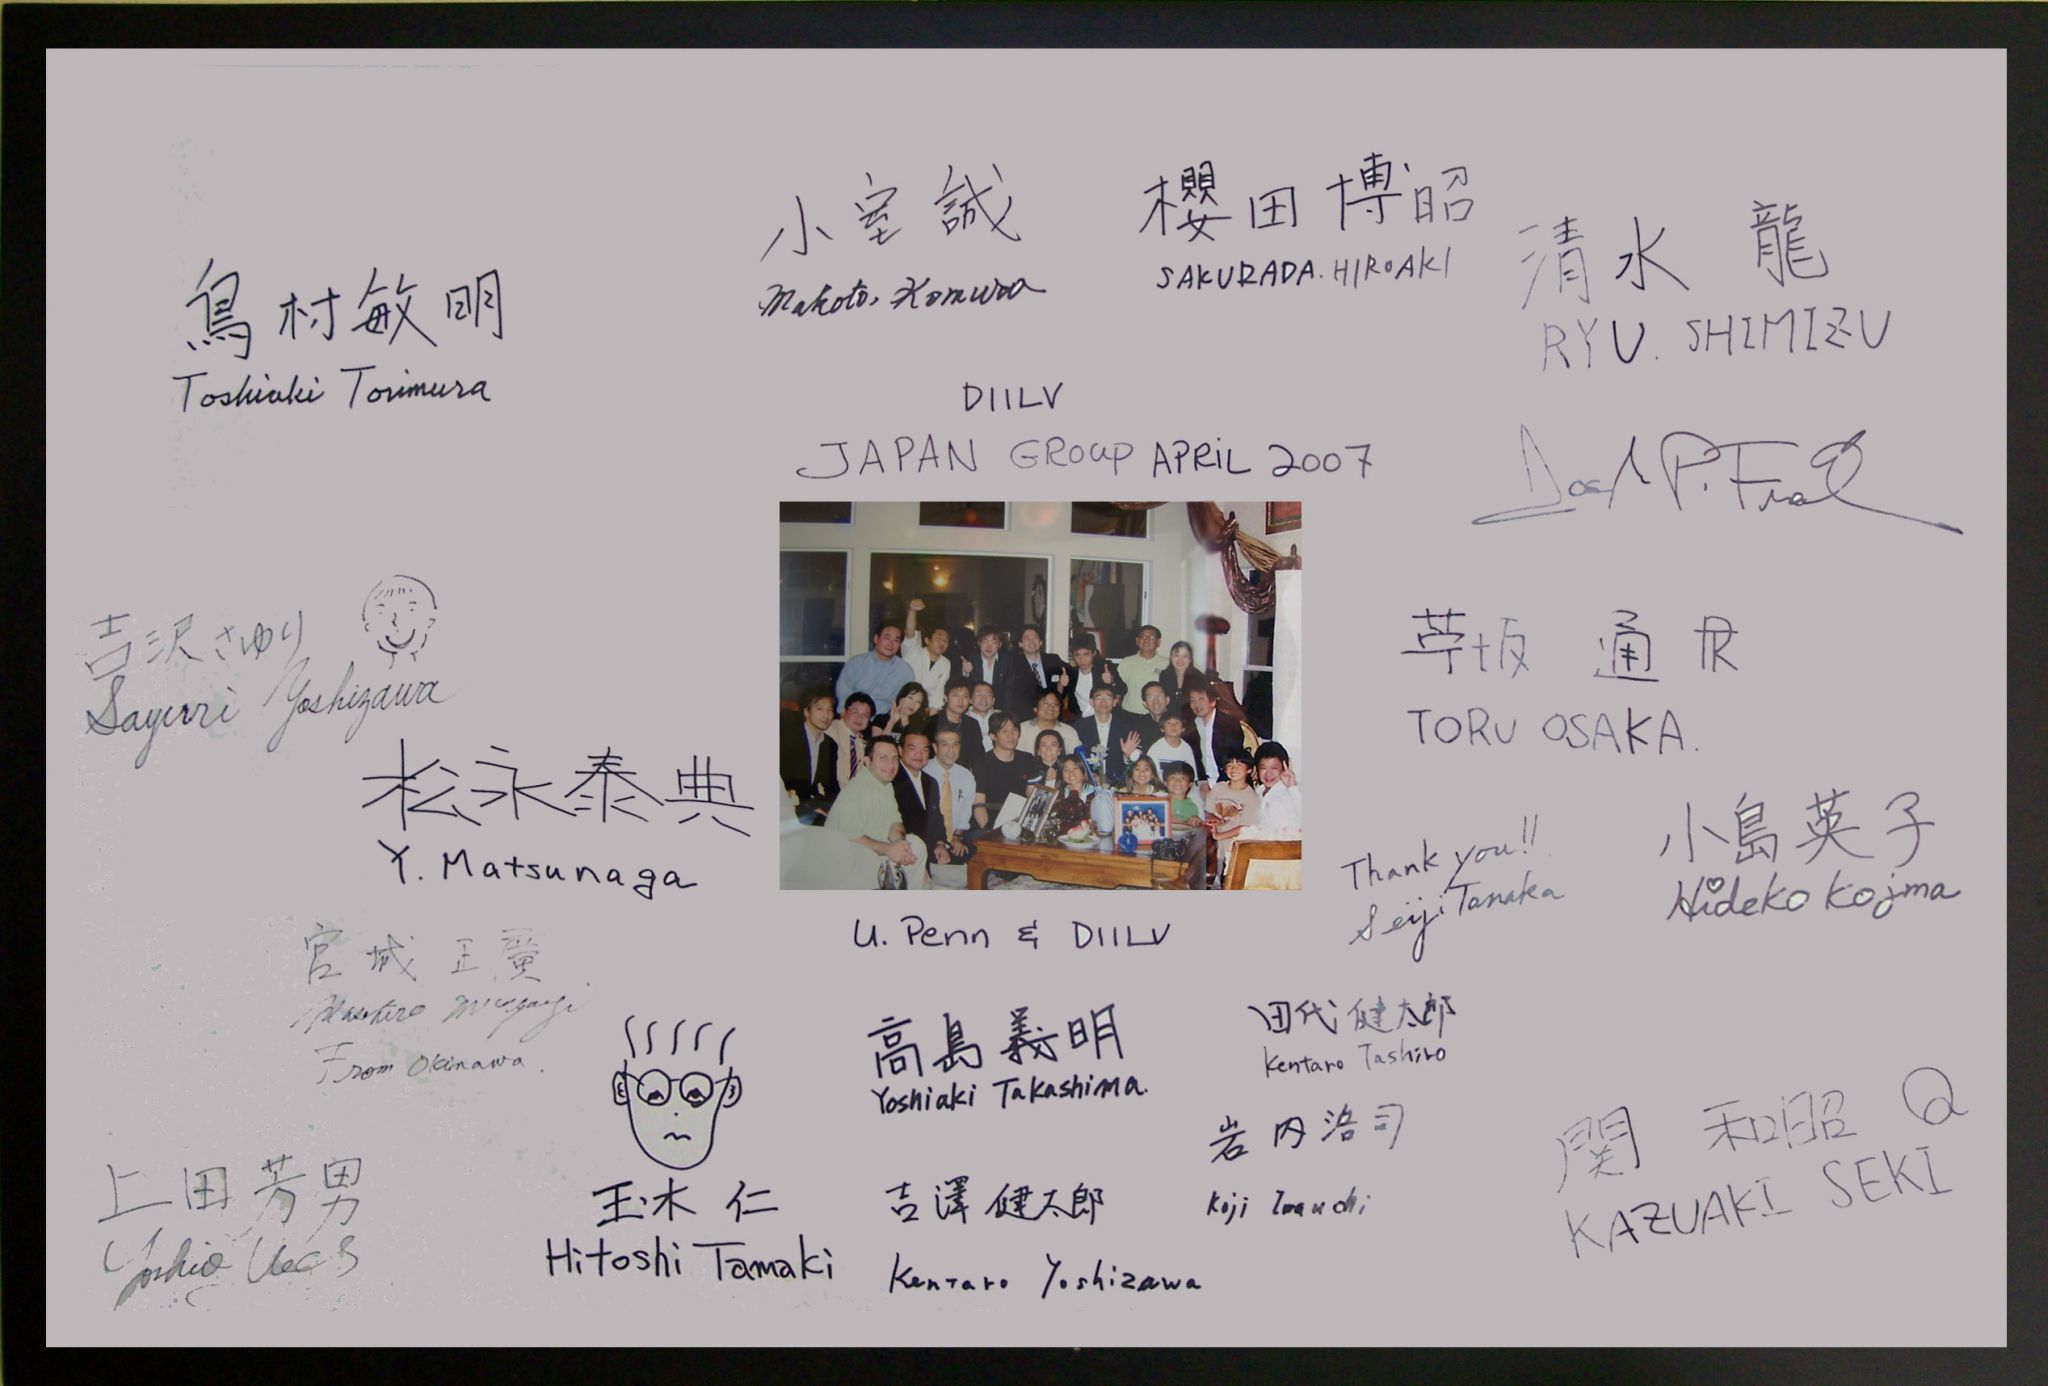 小室誠
Makoto, Komura
櫻田博昭
SAKURADA. HIROAKI
清水 龍
RYU. SHIMIZU
鳥村敏明
Toshiaki Torimura
DIILV
JAPAN GROUP APRIL 2007
吉沢さゆり
Sayuri Yoshizawa
坂 通
TORU OSAKA.
松永泰典
Y. Matsunaga
Thank you!!
Seiji Tanaka
小島英子
Hideko Kojima
U. Penn & DIILV
宮城正廣
Masahiro Miyagi
From Okinawa.
高島義明
Yoshiaki Takashima.
田代健太郎
Kentaro Tashiro
岩内浩司
Koji Iwauchi
関 和昭
KAZUAKI SEKI
上田芳男
Yoshio
玉木 仁
Hitoshi Tamaki
吉澤健太郎
Kentaro Yoshizawa